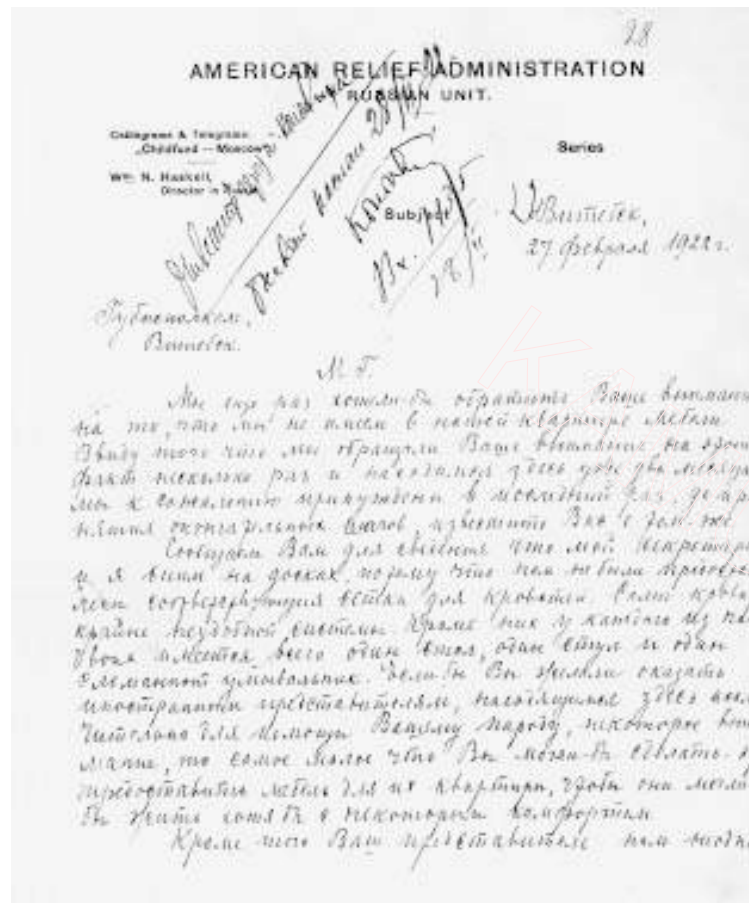 28
AMERICAN RELIEF ADMINISTRATION
RUSSIAN UNIT.
Cablegrams & Telegrams
„Childfund — Moscow"
Series
Wm N. Haskell,
Director in Russia
Subject
Витебск,
27 февраля 1922 г.
28/II
Вх.
28/II
Губисполком,
Витебск.
М Г.
Мы еще раз хотели-бы обратить Ваше внимание
на то, что мы не имеем в нашей квартире мебели
Ввиду того что мы обращали Ваше внимание на этот
факт несколько раз и находимся здесь уже два месяца
мы к сожалению принуждены в последний раз, до при
нятия окончательных шагов, известить Вас о том-же
Сообщаем Вам для сведения что мой секретарь
и я спим на досках, потому что нам не были предостав
лены соответствующия сетки для кроватей. Сами кровати
крайне неудобной системы. Кроме них у каждого из нас
двоих имеется всего один стол, один стул и один
сломанный умывальник. Если бы Вы желали оказать
иностранным представителям, находящимся здесь исклю
чительно для помощи Вашему народу, некоторое вни
мание, то самое малое что Вы могли-бы сделать
предоставить мебель для их квартиры, чтобы они могли
бы жить хотя бы с некоторым комфортом
Кроме того Ваш представитель нам